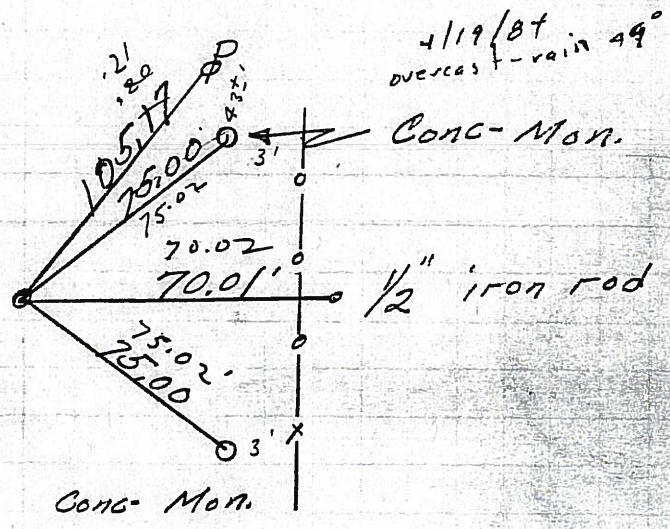 4/19/84
overcast-rain 49°
.21
.20
105.17
75.00'
75.02
3'
Conc-Mon.
70.02
70.01'
1/2" iron rod
75.02'
75.00
3'
Conc- Mon.